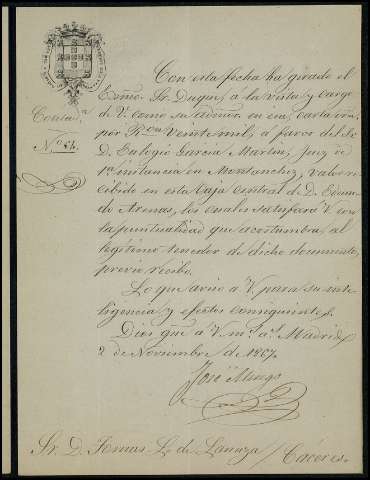 Contad.ª
N.º 84.
Con esta fecha ha girado el
Excmo. Sr. Duque, á la vista y cargo
de V. como su Admor. en esa, carta orn.
por Rvon Veinte mil, á favor de Sr.
D. Eulogio Garcia Martin, Juez de
1ª instancia en Montanchez, valor re-
cibido en esta Caja Central de D. Eduar-
do Arenas, los cuales satisfará V. con
la puntualidad que acostumbra al
legítimo tenedor de dicho documento,
previo recibo.
Lo que aviso á V. para su inte-
ligencia y efectos consiguientes.
Dios gue. á V. m.s a.s Madrid
2 de Noviembre de 1867.
José
Sr. D. Tomas L. de Lanuza / Cáceres.